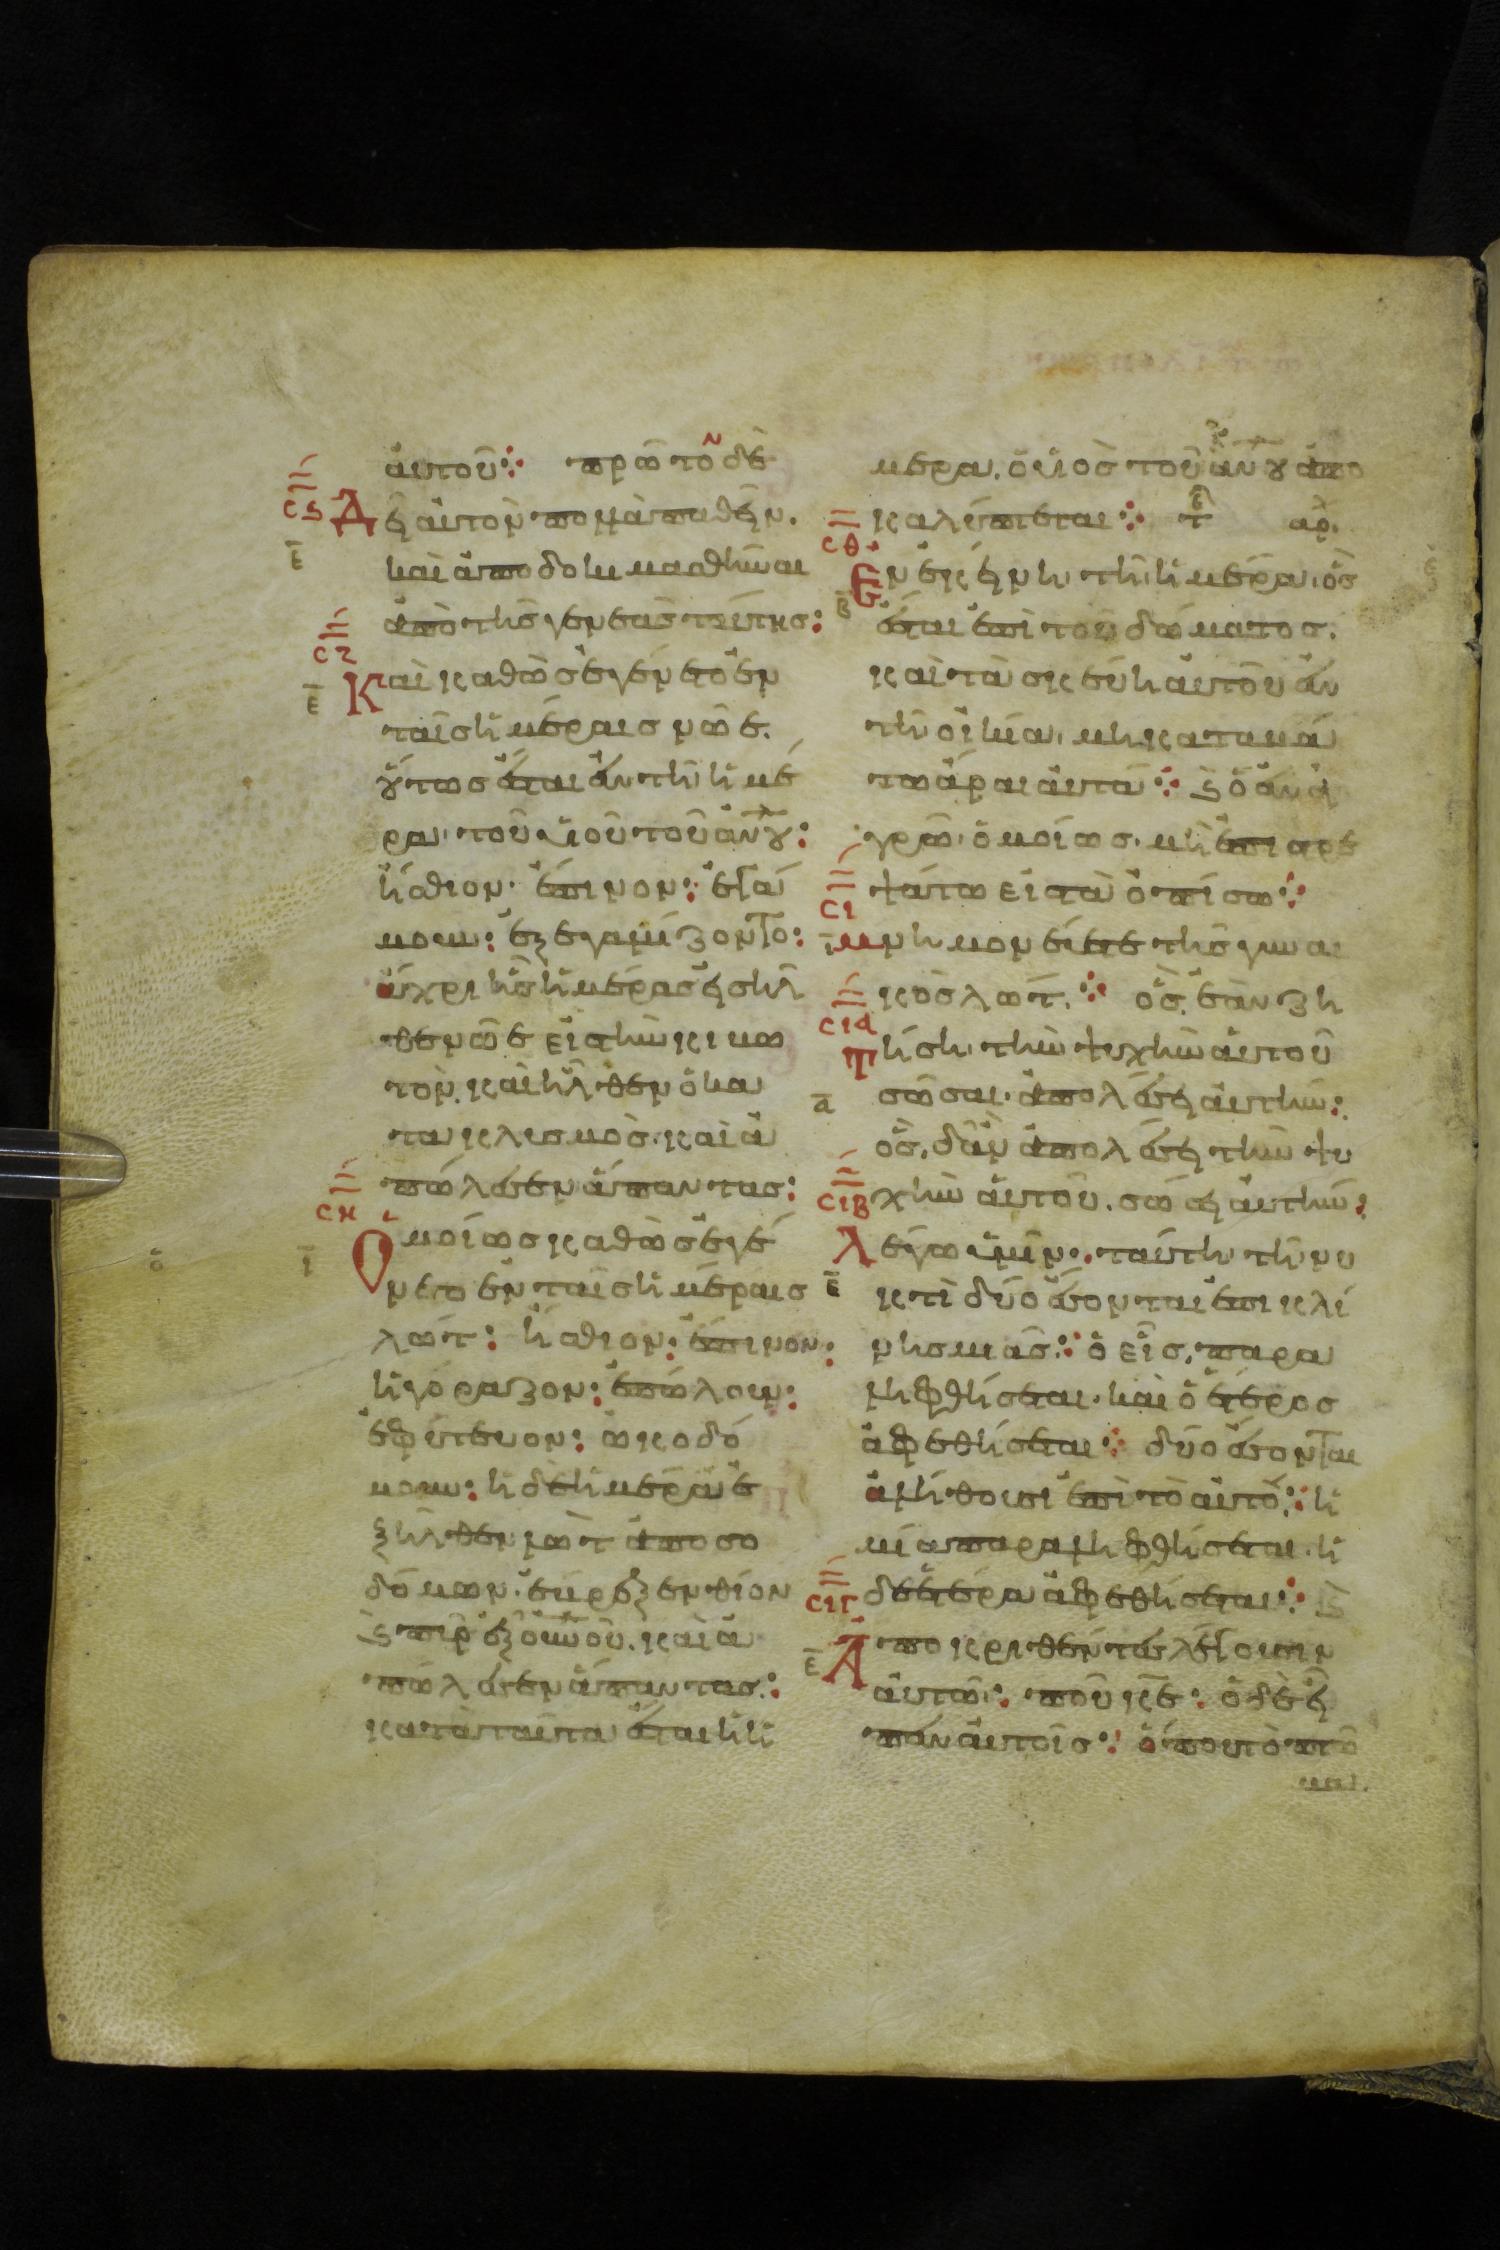 αυτοῦ: πρῶτον δὲ
Δεῖ αὐτὸν πολλὰ παθεῖν.
καὶ ἀποδοκιμασθῆναι
ἀπὸ τῆς γενεᾶς ταύτης:
Καὶ καθὼς ἐγένετο ἐν
ταῖς ἡμέραις νῶε.
οὕτως ἔσται ἐν τῆ ἡμέ
ρα τοῦ υἱοῦ τοῦ ἀνου:
ἤσθιον. ἔπινον: ἐγά
μουν: ἐξεγαμίζοντο:
ἄχρι ἧς ἡμέρας εἰσῆλ
θε νῶε εἰς τὴν κιβω
τόν. καὶ ἦλθεν ὁ κα
τακλυσμὸς. καὶ ἀ
πώλεσεν ἅπαντας:
Ὁμοίως καθὼς ἐγέ
νετο ἐν ταῖς ἡμέραις
λώτ: ἤσθιον: ἔπινον:
ἠγόραζον: ἐπώλουν:
ἐφύτευον: ὠκοδό
μουν: ἡ δὲ ἡμέρα ἐ
ξῆλθεν λὼτ ἀπο σο
δόμων. ἔβρεξεν θεῖον
ϗ πῦρ ἐξ οὐνοῦ. καὶ ἀ
πώλεσεν ἅπαντας:
κατὰ ταῦτα ἔσται ἧ ἡ
μέρα. ὁ υἱὸς τοῦ ἀνου ἀπο
καλύπτεται: τε αρ.
Ἐν ἐκείνη τῆ ἡμέρα. ὃς
ἔσται ἐπὶ τοῦ δώματος.
καὶ τὰ σκεύη αὐτοῦ ἐν
τῆ οἰκία. μὴ καταβά
τω ἆραι αὐτά: ϗ ὁ ἐν ἀ
γρῶ. ὁμοίως. μὴ ἐπιστρε
ψάτω εἰς τὰ ὀπίσω:
μνημονεύετε τῆς γυναι
κὸς λώτ. ὃς ἐὰν ζη
τήση τὴν ψυχὴν αὐτοῦ
σῶσαι. ἀπολέσει αὐτήν:
ὃς δ' ἂν ἀπολέσει τὴν ψυ
χὴν αὐτοῦ. σώσει αὐτήν:
Λέγω ὑμῖν: ταύτη τῆ νυ
κτὶ δύο ἔσονται ἐπι κλί
νης μιᾶς: ὁ εἷς παρα
ληφθήσεται. καὶ ὁ ἕτερος
ἀφεθήσεται: δύο ἔσονται
ἀλήθουσι ἐπὶ τὸ αὐτό: ἡ
μία παραληφθήσεται. ἡ
δὲ ἑτέρα ἀφεθήσεται: ϗ
Ἀποκριθέντες λέγουσιν
αὐτῶ: ποῦ κε: ὁ δὲ εἶ
πεν αὐτοῖς: ὅπου τὸ πτῶ
μα.